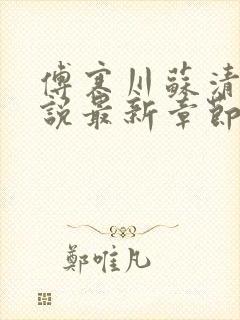 傅寒川蘇清
說最新章節
鄭唯凡